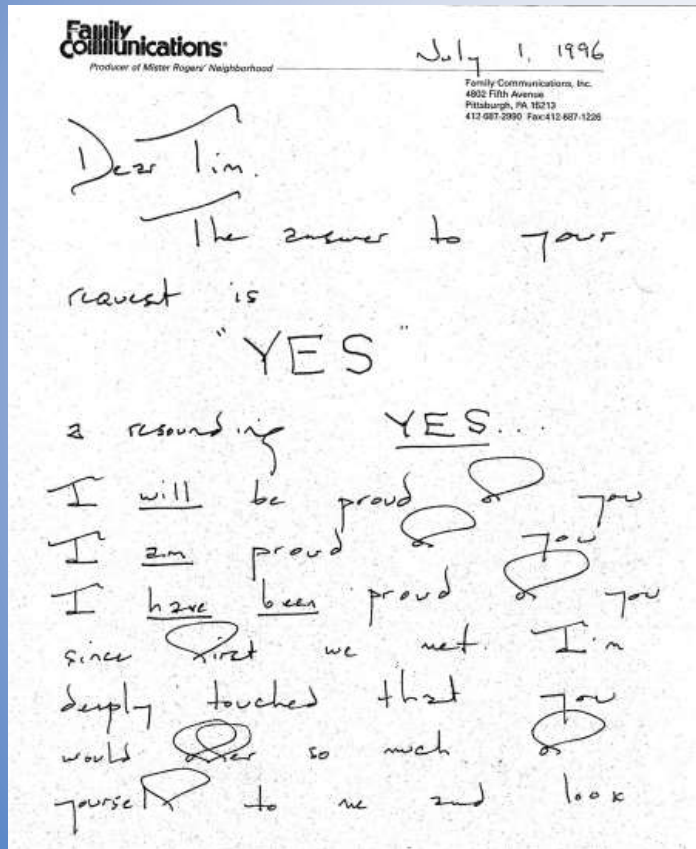 Family
Communications®
Producer of Mister Rogers' Neighborhood
July 1, 1996
Family Communications, Inc.
4802 Fifth Avenue
Pittsburgh, PA 15213
412-687-2990 Fax:412-687-1226
Dear Tim.
The answer to your
request is
"YES"
a resounding YES...
I will be proud of you
I am proud of you
I have been proud of you
since first we met. I'm
deeply touched that you
would offer so much of
yourself to me and look